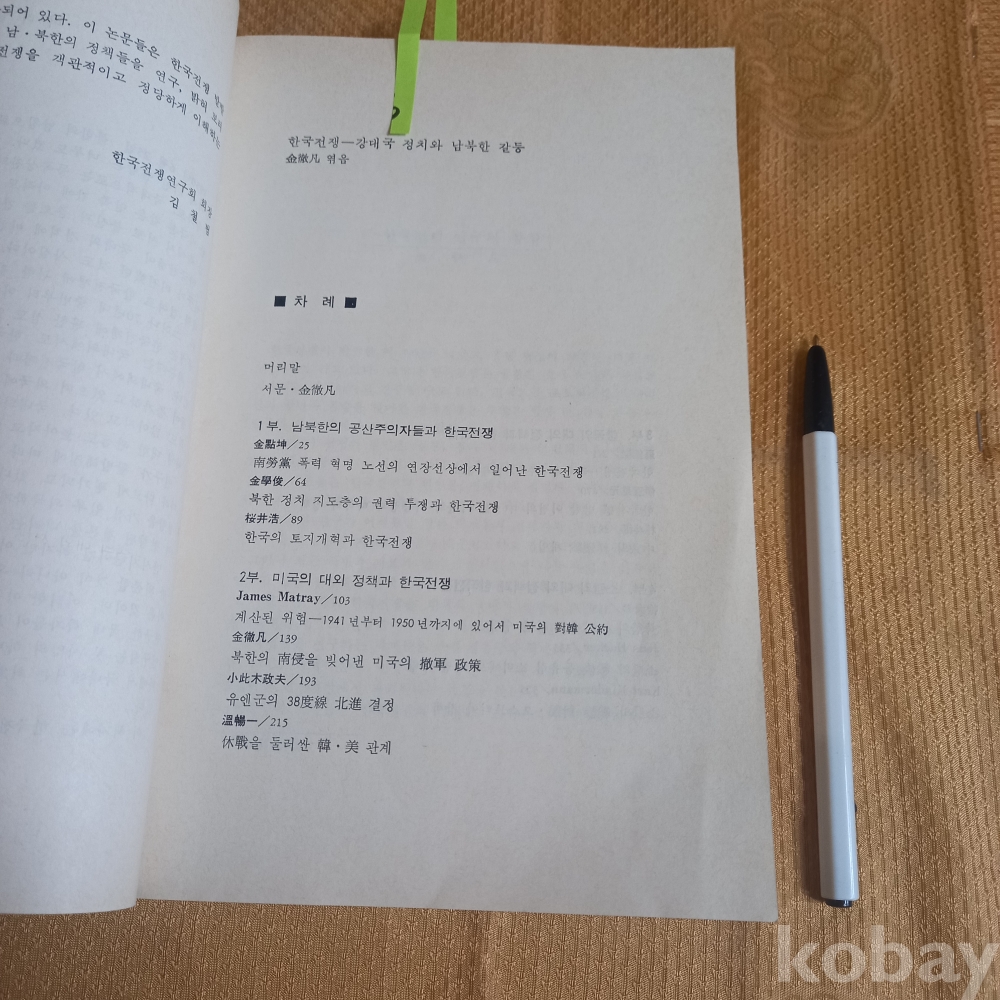 되어 있다. 이 논문들은 한국전쟁
남·북한의 정책들을 연구, 밝혀
전쟁을 객관적이고 정당하게 이해하는
한국전쟁연구회 회장
김 철
한국전쟁—강대국 정치와 남북한 갈등
金徹凡 엮음
■ 차 례 ■
머리말
서문·金徹凡
1부. 남북한의 공산주의자들과 한국전쟁
金點坤/25
南勞黨 폭력 혁명 노선의 연장선상에서 일어난 한국전쟁
金學俊/64
북한 정치 지도층의 권력 투쟁과 한국전쟁
桜井浩/89
한국의 토지개혁과 한국전쟁
2부. 미국의 대외 정책과 한국전쟁
James Matray/103
계산된 위험—1941년부터 1950년까지에 있어서 미국의 對韓 公約
金徹凡/139
북한의 南侵을 빚어낸 미국의 撤軍 政策
小此木政夫/193
유엔군의 38度線 北進 결정
溫暢一/215
休戰을 둘러싼 韓·美 관계
kobay